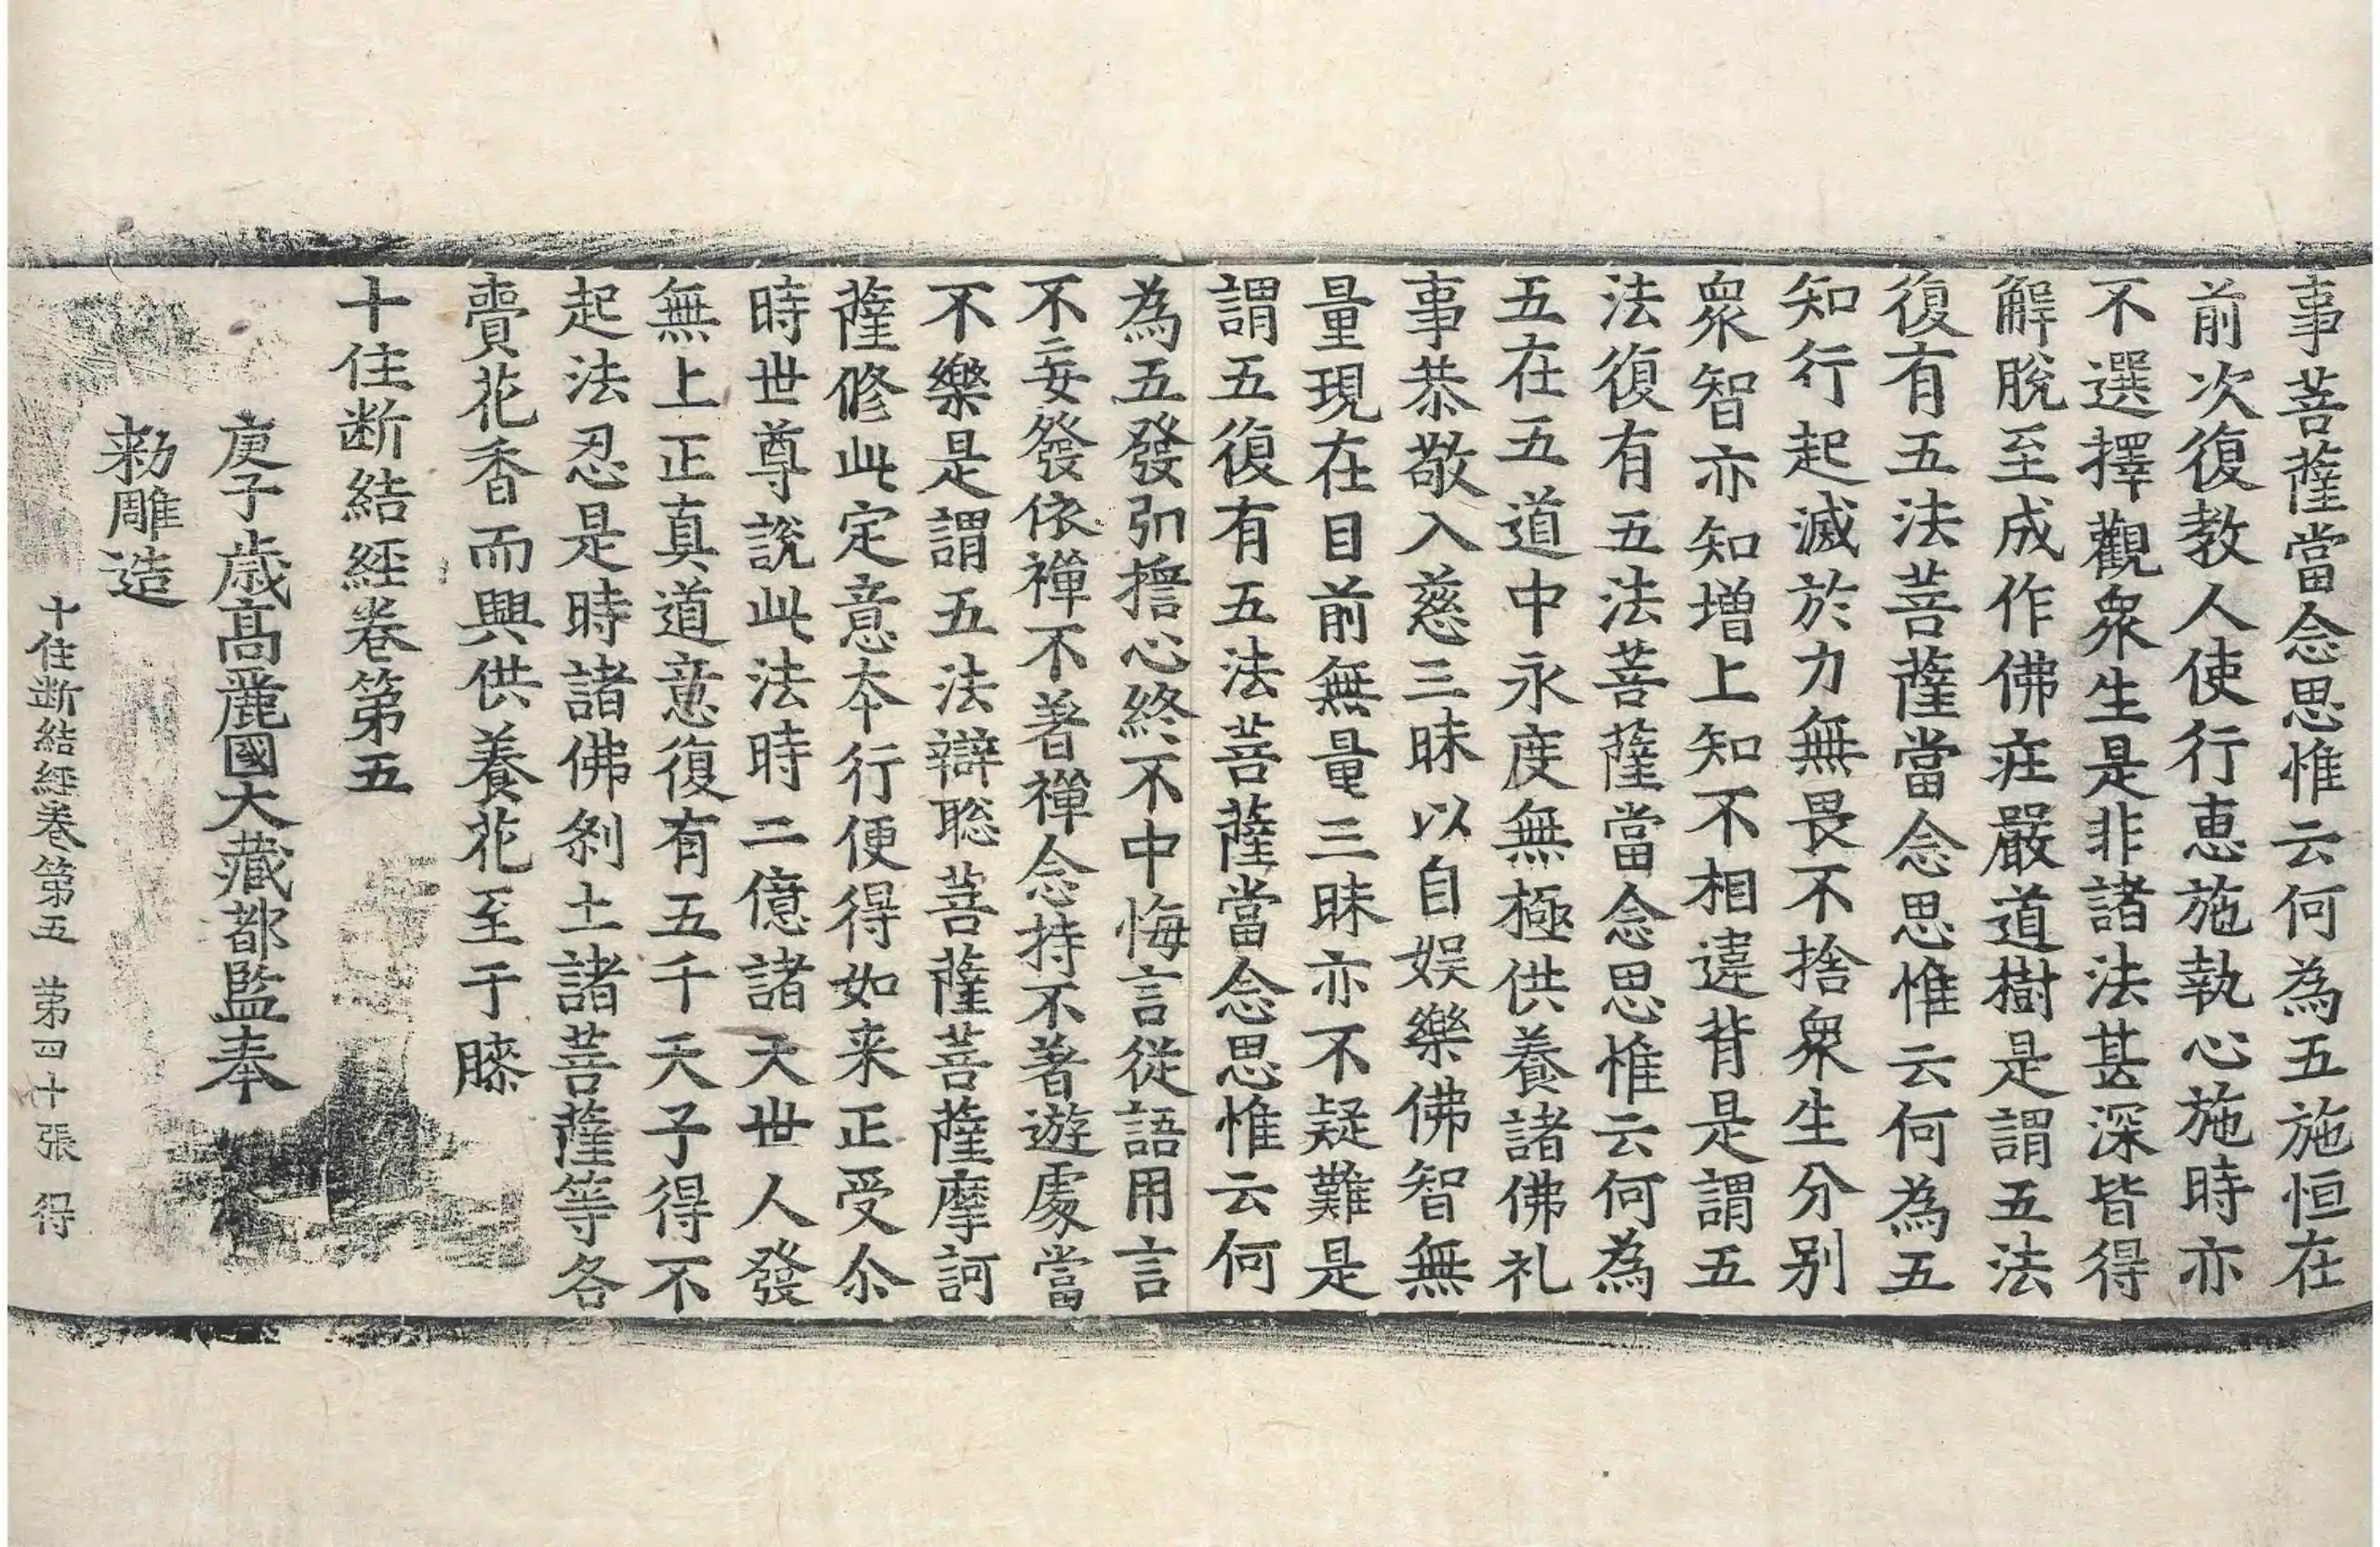 事菩薩當念思惟云何為五施恒在
前次復教人使行恵施執心施時亦
不選擇觀衆生是非諸法甚深皆得
解脫至成作佛莊嚴道樹是謂五法
復有五法菩薩當念思惟云何為五
知行起滅於力無畏不捨衆生分别
衆智亦知增上知不相違背是謂五
法復有五法菩薩當念思惟云何為
五在五道中永度無極供養諸佛礼
事恭敬入慈三昧以自娱樂佛智無
量現在目前無量三昧亦不疑難是
謂五復有五法菩薩當念思惟云何
為五發弘擔心終不中悔言從語用言
不妄發依禪不著禪念持不著遊處當
不樂是謂五法辯聡菩薩菩薩摩訶
薩修此定意本行便得如来正受尒
時世尊說此法時二億諸天世人發
無上正真道意復有五千天子得不
起法忍是時諸佛剎土諸菩薩等各
賷花香而興供養花至于膝
十住断結経卷第五
庚子歳髙麗國大藏都監奉
勑雕造
十住断結経卷第五 第四十張 得